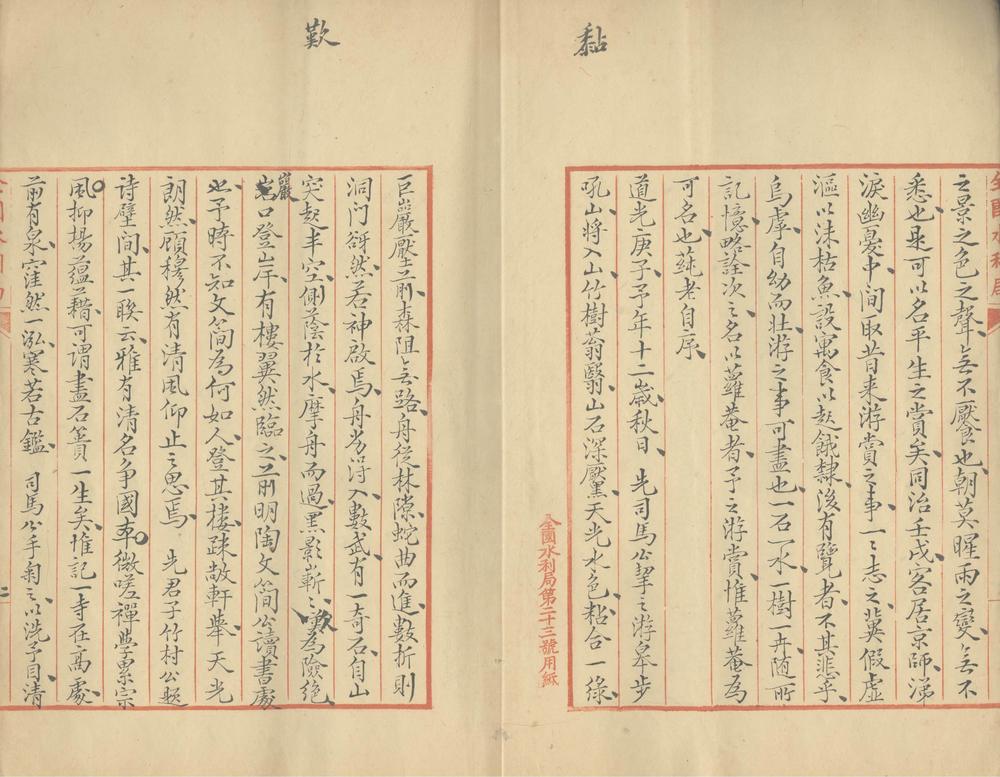 黏
之景之色之聲無不饜也朝莫暒雨之變無不
悉也是可以名平生之賞矣同治壬戌客居京師涕
淚幽憂中間取昔来游賞之事一一志之冀假虛
漚以沫枯魚設寓食以起餓隸後有覽者不其悲乎
烏虖自幼而壯游之事可盡也一石一水一樹一卉随所
記憶略詮次之名以蘿菴者予之游賞惟蘿菴為
可名也蒓老自序
道光庚子予年十二歲秋日 先司馬公挈之游皋步
吼山將入山竹樹蓊翳山石深壓天光水色粘合一綠
全國水利局第二十三號用紙
歎
巨巖壓前森阻無路舟從林隙蛇曲而進數折則
洞門谺然若神啟焉舟劣淂入數武有一奇石自山
突起半空側蔭於水摩舟而過黑影嶄嶄歎為險絕
巖口登岸有樓翼然臨之前明陶文簡公讀書處
也予時不知文簡為何如人登其樓疎敞軒舉天光
朗然顧穆然有清風仰止之思焉 先君子竹村公題
诗壁間其一聯云雅有清名争國本微嗟禪學累宗
風抑揚蘊藉可謂盡石簣一生矣惟記一寺在高處
前有泉窪然一泓寒若古鑑 司馬公手匊之以洗予目清